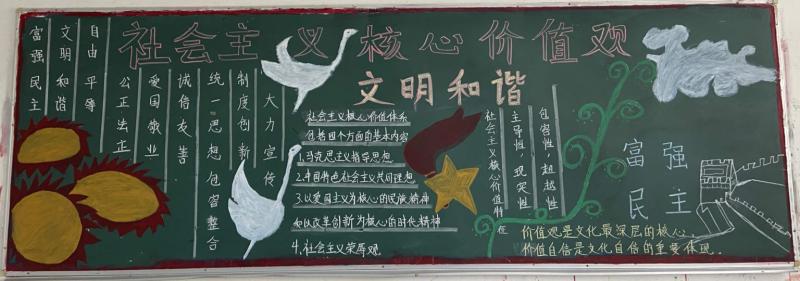 社会主义核心价值观
文明和谐
富强民主
文明和谐
自由平等
公正法正
爱国敬业
诚信友善
统一思想包容整合
制度创新
大力宣传
社会主义核心价值体系
包括四个方面的基本内容
1.马克思主义指导思想
2.中国特色社会主义共同理想
3.以爱国主义为核心的民族精神
和以改革创新为核心的时代精神
4.社会主义荣辱观
社会主义核心价值特在
主导性，现实性
包容性，超越性
富强
民主
价值观是文化最深层的核心
价值自信是文化自信的重要体现.